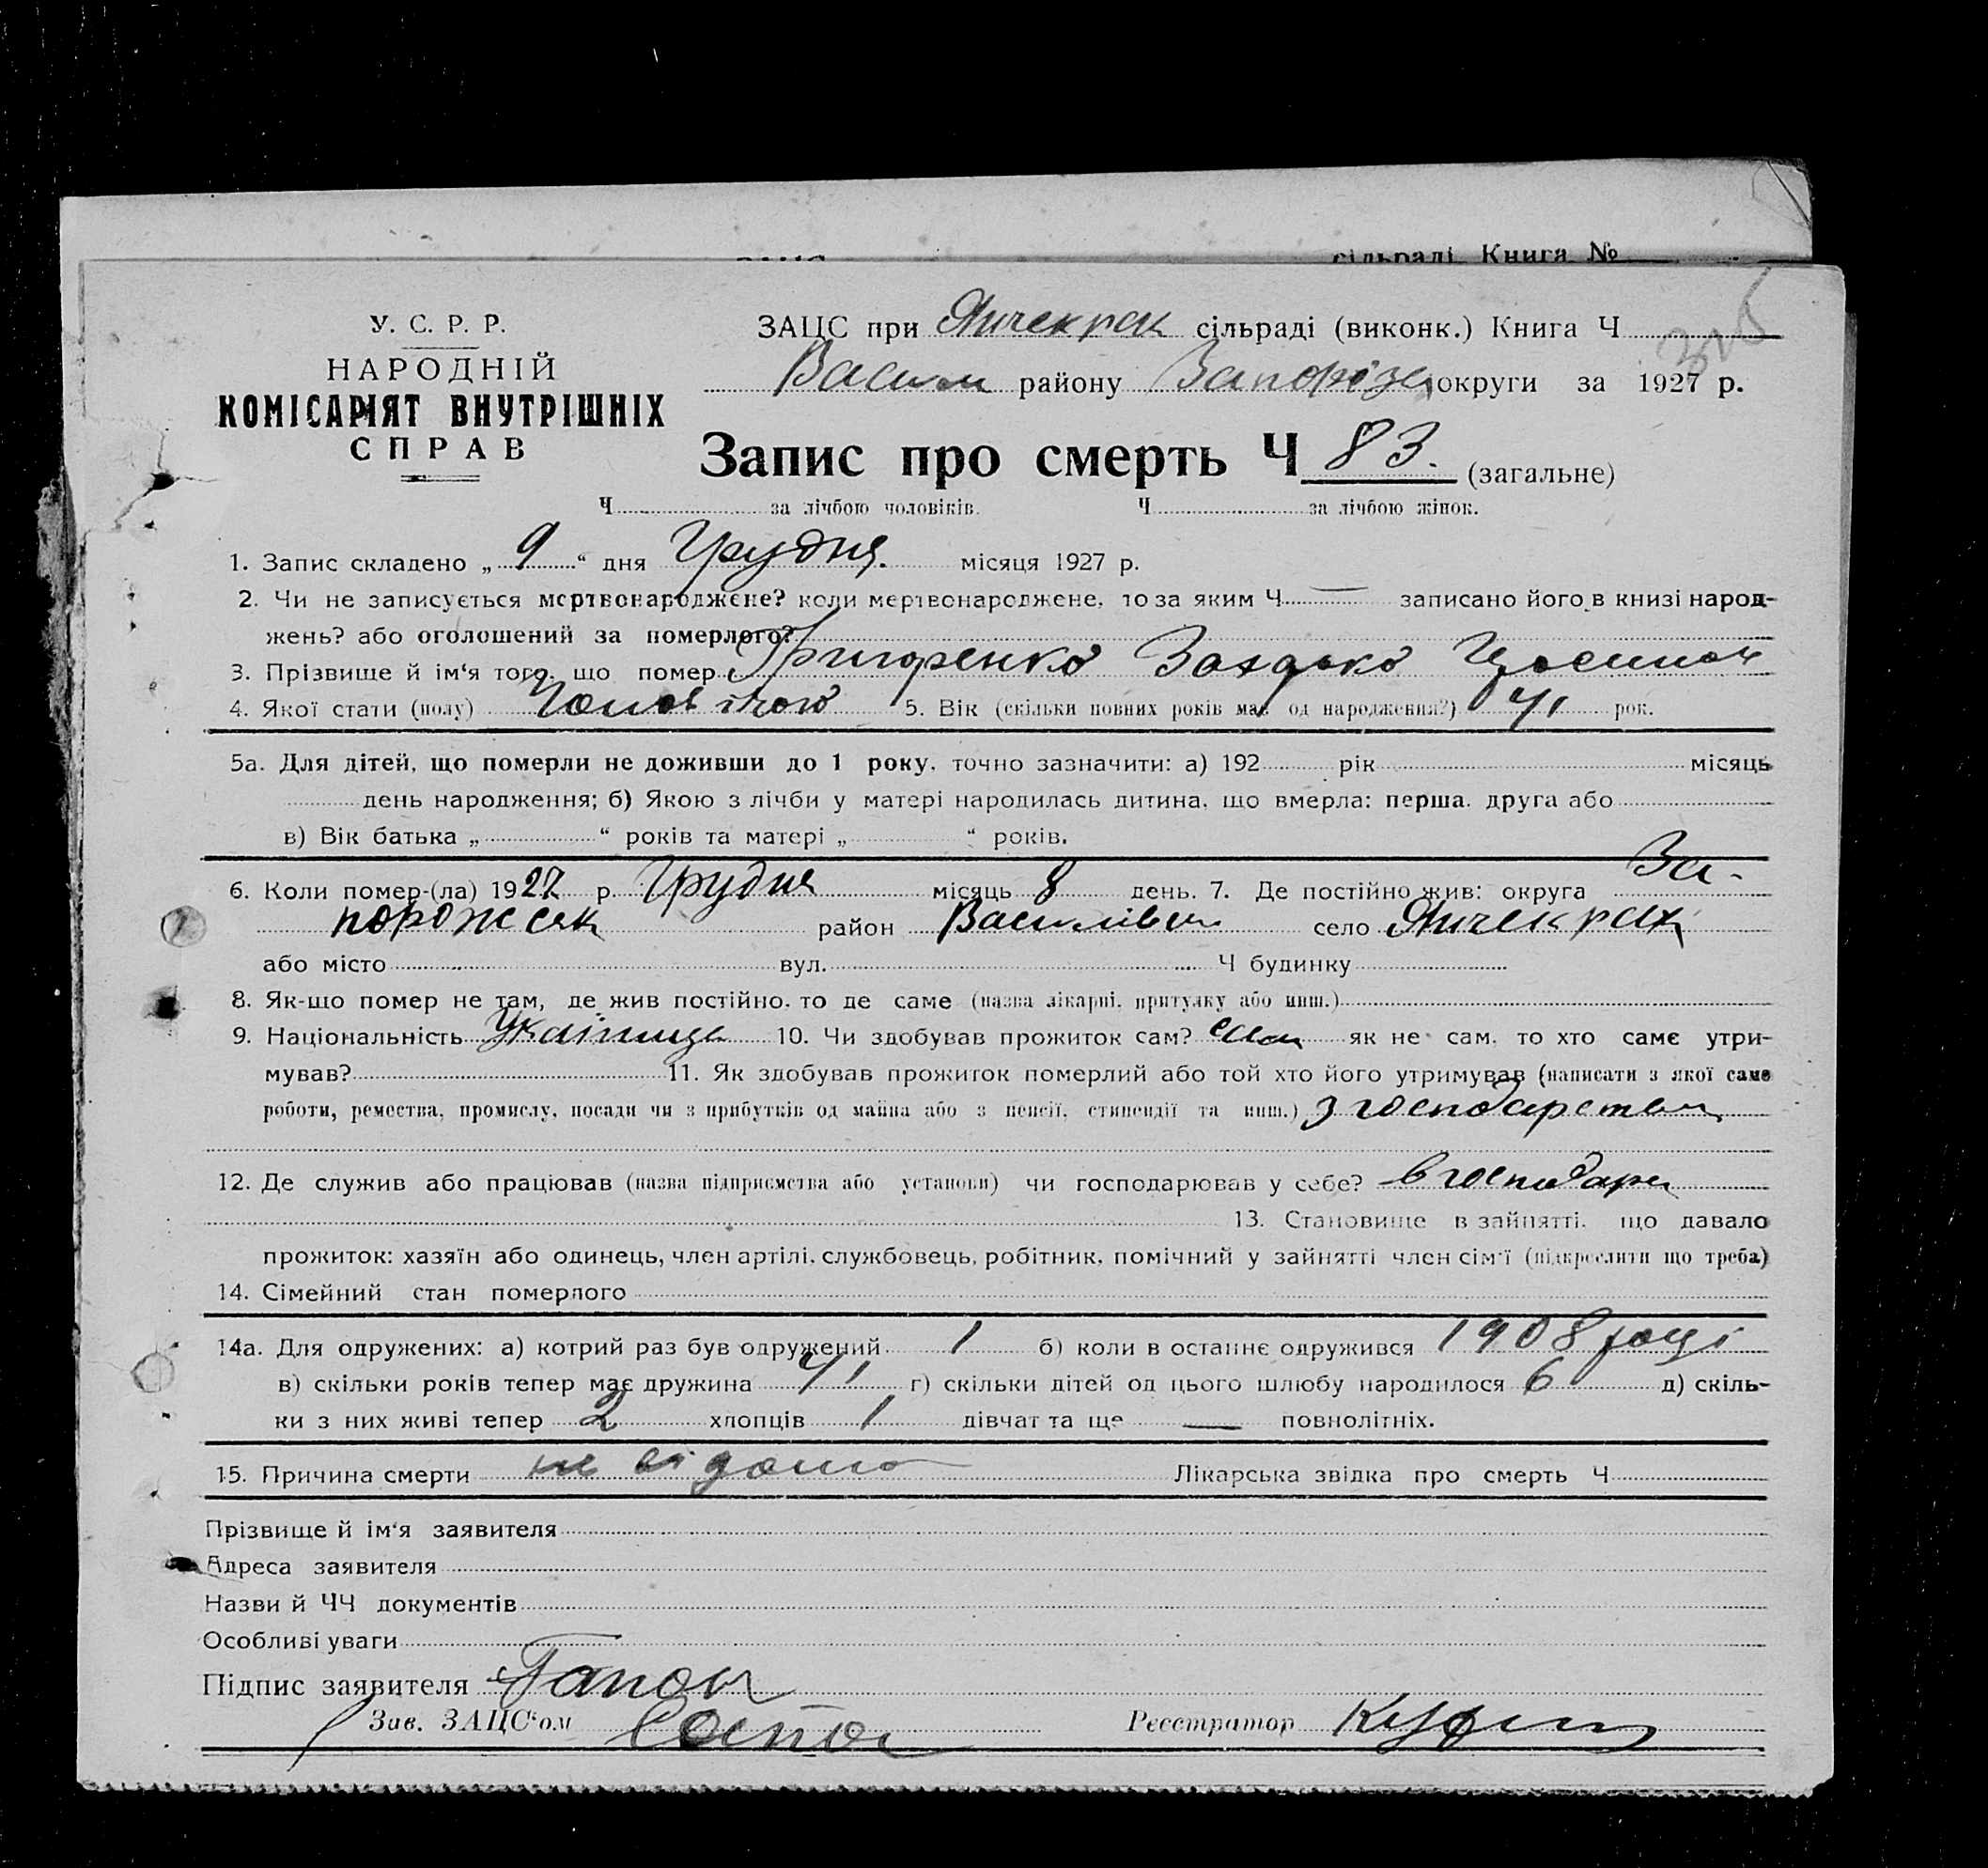 сільраді Книга №
У. С. Р. Р.
НАРОДНІЙ
КОМІСАРІЯТ ВНУТРІШНІХ
СПРАВ
ЗАЦС при Янчекрак сільраді (виконк.) Книга Ч
Васил району Запоріз округи за 1927 р.
Запис про смерть Ч 83. (загальне)
Ч за лічбою чоловіків. Ч за лічбою жінок.
1. Запис складено „ 9 “ дня Грудня. місяця 1927 р.
2. Чи не записується мертвонароджене? коли мертвонароджене, то за яким Ч — записано його в книзі народ-
жень? або оголошений за померлого?
3. Прізвище й ім‘я того, що помер Григоренко Захарко
4. Якої стати (полу) Чоловічого 5. Вік (скільки повних років мав од народження?) 41 рок.
5а. Для дітей, що померли не доживши до 1 року, точно зазначити: а) 192 рік місяць
день народження; б) Якою з лічби у матері народилась дитина, що вмерла: перша, друга або
в) Вік батька „ “ років та матері „ “ років.
6. Коли помер-(ла) 1927 р. Грудня місяць 8 день. 7. Де постійно жив: округа За-
порожсяк район Василівськ село Янчекрак
або місто вул. Ч будинку
8. Як-що помер не там, де жив постійно, то де саме (назва лікарні, притулку або инш.)
9. Національність Українець 10. Чи здобував прожиток сам? сам як не сам, то хто саме утри-
мував? 11. Як здобував прожиток померлий або той хто його утримував (написати з якої саме
роботи, ремества, промислу, посади чи з прибутків од майна або з пенсії, стипендії та инш.) з господарства
12. Де служив або працював (назва підприємства або установи) чи господарював у себе? в господар
13. Становище в зайнятті, що давало
прожиток: хазяїн або одинець, член артілі, службовець, робітник, помічний у зайнятті член сім‘ї (підкреслити що треба)
14. Сімейний стан померлого
14а. Для одружених: а) котрий раз був одружений 1 б) коли в останнє одружився 1908 році
в) скільки років тепер має дружина 41 г) скільки дітей од цього шлюбу народилося 6 д) скіль-
ки з них живі тепер 2 хлопців 1 дівчат та ще — повнолітніх.
15. Причина смерти не відомо Лікарська звідка про смерть Ч
Прізвище й ім‘я заявителя
Адреса заявителя
Назви й ЧЧ документів
Особливі уваги
Підпис заявителя Гапон
Зав. ЗАЦС‘ом Реєстратор